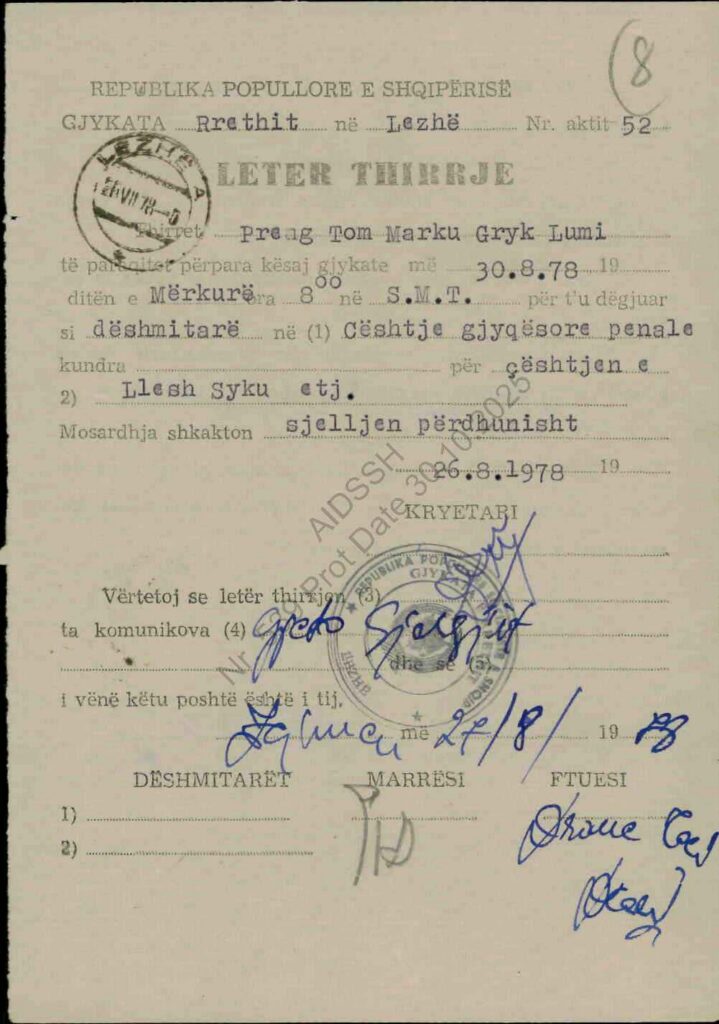 8
REPUBLIKA POPULLORE E SHQIPËRISË
GJYKATA Rrethit në Lezhë Nr. aktit 52
LEZHË A
LETER THIRRJE
Thirret Preng Tom Marku Gryk Lumi
të paraqitet përpara kësaj gjykate më 30.8.78 19
ditën e Mërkurë ora 8⁰⁰ në S.M.T. për t'u dëgjuar
si dëshmitarë në (1) Cështje gjyqësore penale
kundra për çështjen e
2) Llesh Syku etj.
Mosardhja shkakton sjelljen përdhunisht
26.8.1978 19
AIDSSH
Prot Date 30.10.2025
KRYETARI
REPUBLIKA
GJYKATA
Vërtetoj se letër thirrjen (3)
ta komunikova (4)
dhe se (5)
i vënë këtu poshtë është i tij.
më 27/8/ 19 78
DËSHMITARËT MARRËSI FTUESI
1)
2)